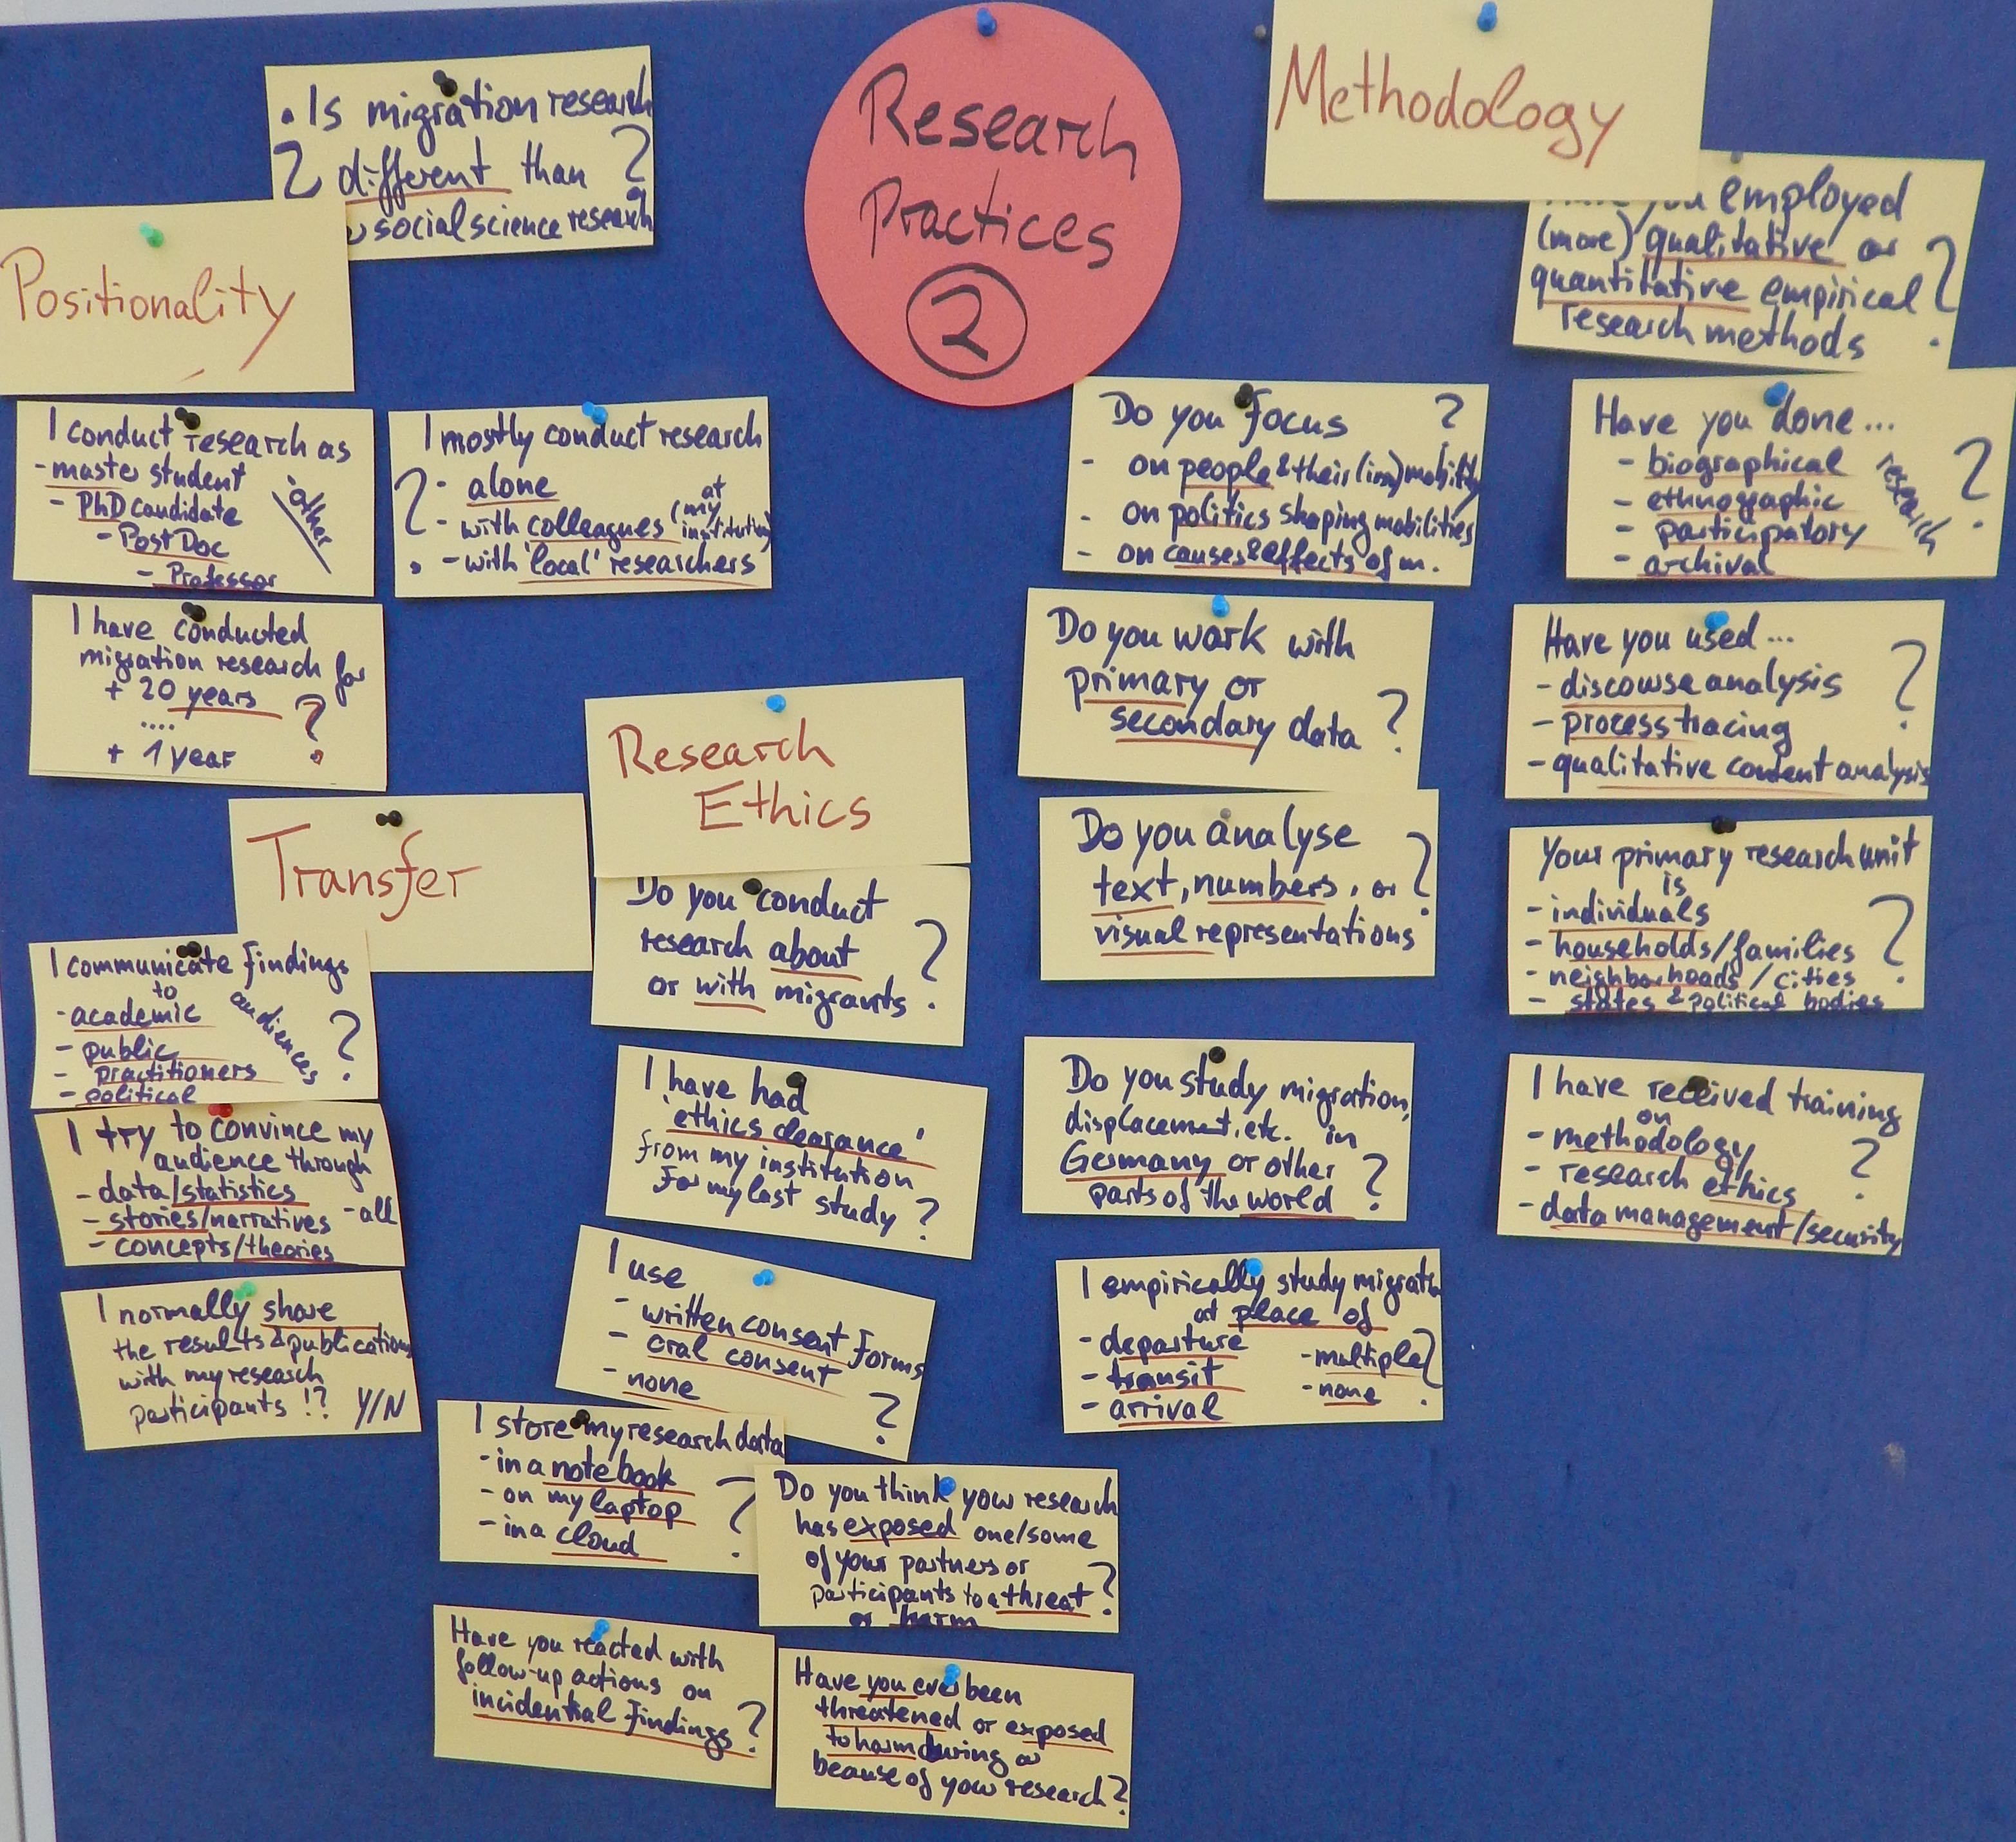 Research
Practices
2
• Is migration research
? different than ?
social science research
Positionality
I conduct research as
- master student
- PhD candidate
- Post Doc
- Professor
- other
I mostly conduct research
?
- alone
- with colleagues (at my institution)
- with 'local' researchers
I have conducted
migration research for
+ 20 years
....
+ 1 year
?
Transfer
I communicate findings
to
- academic
- public
- practitioners
- political
audiences ?
I try to convince my
audience through
- data/statistics
- stories/narratives - all
- concepts/theories
I normally share
the results & publications
with my research
participants !? Y/N
Research
Ethics
Do you conduct
research about
or with migrants ?
I have had
'ethics clearance'
from my institution
for my last study ?
I use
- written consent forms
- oral consent
- none
?
I store my research data
- in a notebook
- on my laptop
- in a cloud
?
Do you think your research
has exposed one/some
of your partners or
participants to a threat ?
or harm
Have you reacted with
follow-up actions on
incidential findings ?
Have you ever been
threatened or exposed
to harm during or
because of your research?
Methodology
you employed
(more) qualitative or
quantitative empirical
research methods
?
Do you focus ?
- on people & their (im)mobility
- on politics shaping mobilities
- on causes & effects of m.
Have you done ...
- biographical
- ethnographic
- participatory
- archival
research ?
Do you work with
primary or
secondary data ?
Have you used ...
- discourse analysis
- process tracing
- qualitative content analysis
?
Do you analyse
text, numbers, or
visual representations
?
Your primary research unit
is
- individuals
- households/families
- neighborhoods/cities
- states & political bodies
?
Do you study migration,
displacement, etc. in
Germany or other
parts of the world ?
I have received training
on
- methodology
- research ethics
- data management/security
?
I empirically study migrati
at place of
- departure
- transit
- arrival
- multiple
- none
?